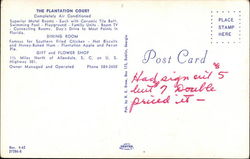 THE PLANTATION COURT
Completely Air Conditioned
Superior Motel Rooms - Each with Ceramic Tile Bath,
Swimming Pool - Playground - Family Units - Room TV
- Connecting Rooms. Day's Drive to Most Points in
Florida.
DINING ROOM
Famous for Southern Fried Chicken - Hot Biscuits
and Honey-Baked Ham - Plantation Apple and Pecan
Pie.
GIFT and FLOWER SHOP
1½ Miles North of Allendale, S. C. at U. S.
Highway 301.
Owner Managed and Operated
Post Card
Had sign
but
Double
priced it -